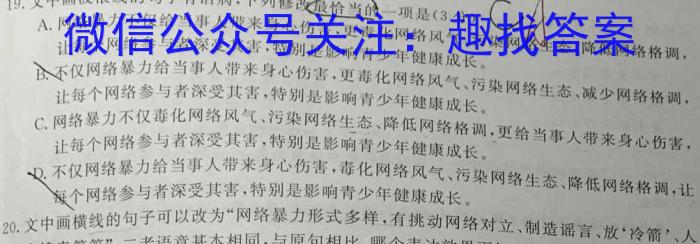 19. 文中画波浪线的句子有语病,下列修改最恰当的一项是(3
A. 网络暴力不仅给当事人带来身心伤害,更毒化网络风气、
降低网络格调,
让每个网络参与者深受其害,特别是影响青少年健康成长。
微信公众号关注:趣找答案
B. 不仅网络暴力给当事人带来身心伤害,更毒化网络风气、污染网络生态、减少网络格调,
让每个网络参与者深受其害,特别是影响青少年健康成长。
C. 网络暴力不仅毒化网络风气、污染网络生态、降低网络格调,更给当事人带来身心伤害,
让每个网络参与者深受其害,特别是影响青少年健康成长。
D. 不仅网络暴力给当事人带来身心伤害,毒化网络风气、污染网络生态、降低网络格调,让
每个网络参与者深受其害,特别是影响青少年健康成长。
20. 文中画横线的句子可以改为“网络暴力形式多样,有挑动网络对立、制造谣言、放‘冷箭’、人
二者语意基本相同,与原句相比,哪个表达效果